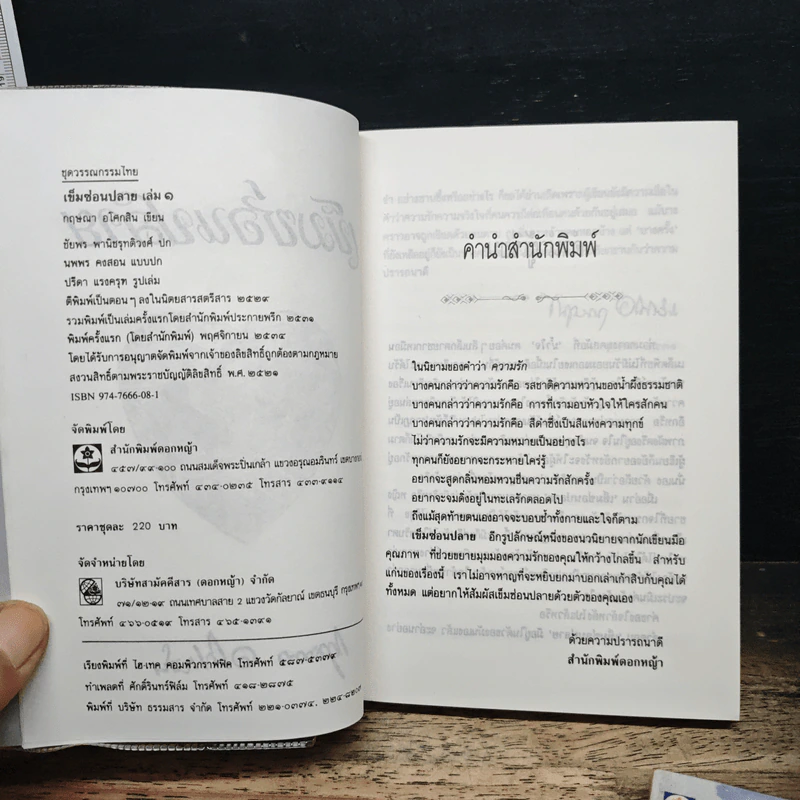 ชุดวรรณกรรมไทย
เข็มซ่อนปลาย เล่ม ๑
กฤษณา อโศกสิน เขียน
ชัยพร พานิชรุทติวงศ์ ปก
นพพร คงสอน แบบปก
ปรีดา แรงครุฑ รูปเล่ม
ตีพิมพ์เป็นตอนๆ ลงในนิตยสารสตรีสาร ๒๕๒๙
รวมพิมพ์เป็นเล่มครั้งแรกโดยสำนักพิมพ์ประกายพรึก ๒๕๓๑
พิมพ์ครั้งแรก (โดยสำนักพิมพ์) พฤศจิกายน ๒๕๓๔
โดยได้รับการอนุญาตจัดพิมพ์จากเจ้าของลิขสิทธิ์ถูกต้องตามกฎหมาย
สงวนสิทธิ์ตามพระราชบัญญัติลิขสิทธิ์ พ.ศ. ๒๕๒๑
ISBN 974-7666-08-1
จัดพิมพ์โดย
สำนักพิมพ์ดอกหญ้า
๔๕๗/๙๙-๑๐๐ ถนนสมเด็จพระปิ่นเกล้า แขวงอรุณอมรินทร์
กรุงเทพฯ ๑๐๗๐๐ โทรศัพท์ ๔๓๔-๐๒๓๕ โทรสาร ๔๓๓-๙๑๑๔
ราคาชุดละ 220 บาท
จัดจำหน่ายโดย
บริษัทสามัคคีสาร (ดอกหญ้า) จำกัด
๗๑/๑๒-๑๙ ถนนเทศบาลสาย 2 แขวงวัดกัลยาณ์ เขตธนบุรี
โทรศัพท์ ๔๖๖-๐๕๑๙ โทรสาร ๔๖๕-๑๓๙๑
เรียงพิมพ์ที่ ไฮ-เทค คอมพิวกราฟฟิค โทรศัพท์ ๕๘๗-๕๓๗๙
ทำเพลตที่ ศักดิ์รินทร์ฟิล์ม โทรศัพท์ ๔๑๘-๒๘๗๕
พิมพ์ที่ บริษัท ธรรมสาร จำกัด โทรศัพท์ ๒๒๑-๐๓๗๔,
คำนำสำนักพิมพ์
ในนิยามของคำว่า ความรัก
บางคนกล่าวว่าความรักคือ รสชาติความหวานของน้ำผึ้งธรรมชาติ
บางคนกล่าวว่าความรักคือ การที่เรามอบหัวใจให้ใครสักคน
บางคนกล่าวว่าความรักคือ สีดำซึ่งเป็นสีแห่งความทุกข์
ไม่ว่าความรักจะมีความหมายเป็นอย่างไร
ทุกคนก็ยังอยากจะกระหายใคร่รู้
อยากจะสูดกลิ่นหอมหวานชื่นความรักสักครั้ง
อยากจะจมดิ่งอยู่ในทะเลรักตลอดไป
ถึงแม้สุดท้ายตนเองอาจจะบอบช้ำทั้งกายและใจก็ตาม
เข็มซ่อนปลาย อีกรูปลักษณ์หนึ่งของนวนิยายจากนักเขียนมือ
คุณภาพ ที่ช่วยขยายมุมมองความรักของคุณให้กว้างไกลขึ้น สำหรับ
แก่นของเรื่องนี้ เราไม่อาจหาญที่จะหยิบยกมาบอกเล่าเก้าสิบกับคุณได้
ทั้งหมด แต่อยากให้สัมผัสเข็มซ่อนปลายด้วยตัวของคุณเอง
ด้วยความปรารถนาดี
สำนักพิมพ์ดอกหญ้า